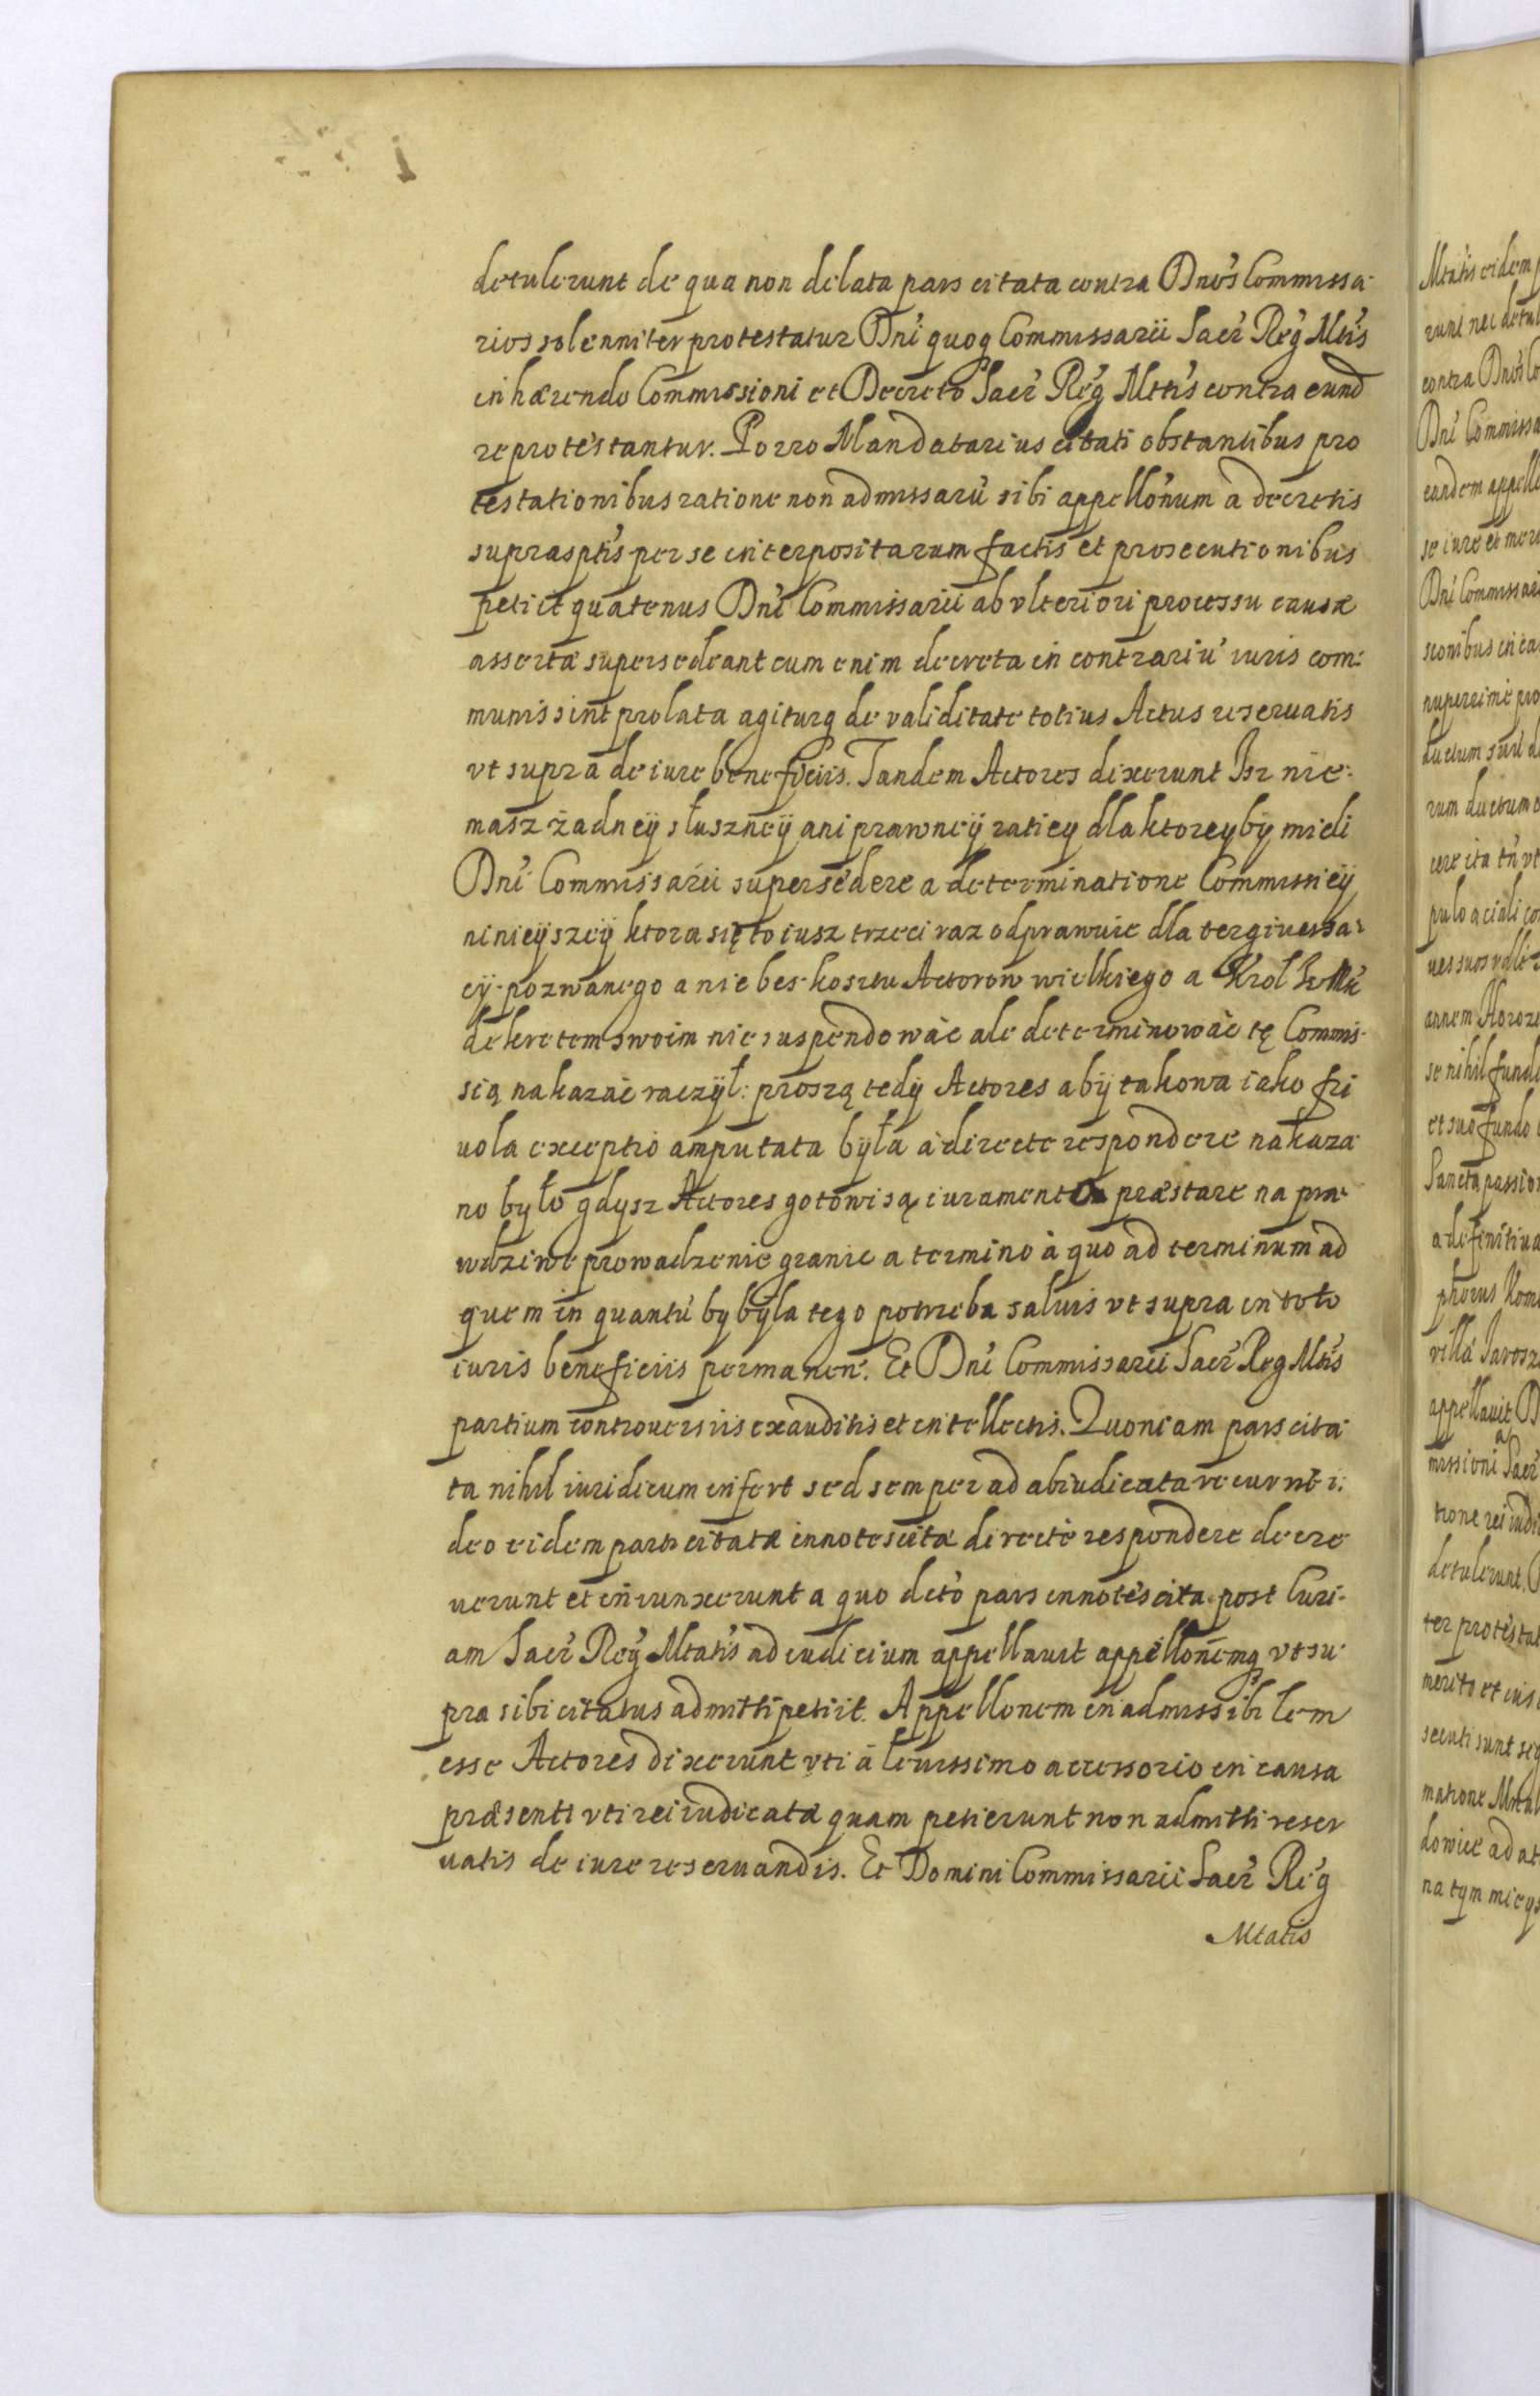 detulerunt de qua non delata pars citata contra Dnos Commissa-
rios solenniter protestatur Dni quoq Commissarii Sacr Reg Mtis
inhærendo Commissioni et Decreto Sacr Reg Mttis contra eund
reprotestantur. Porro Mandatarius citati obstantibus pro
testationibus ratione non admissarū sibi appellonum a decretis
suprasptis per se interpositarum factis et prosecutionibus
petiit quatenus Dni Commissarii ab vlteriori processu causæ
assertæ supersedeant cum enim decreta in contrariū iuris com:
munis sint prolata agiturq de validitate totius Actus reseruatis
vt supra de iure beneficiis. Tandem Actores dixerunt Isz nie:
masz żadneÿ słuszneÿ ani prawneÿ ratiey dla ktoreybÿ mieli
Dni Commissarii supersedere a determinatione Commissieÿ
ninieÿszeÿ ktora się to iusz trzeci raz odprawuie dla tergiuersa-
cÿ pozwanego a nie bes kosztu Actorow wielkiego a Krol
dekretem swoim nie suspendowác ale determinowác tę Commis-
sią nakazác raczÿł: proszą tedÿ Actores abÿ takowa iako fri
uola exceptio amputata bÿła a directe respondere nakaza
no było gdysz Actores gotowi są iuramenta præstare na pra-
wdziwe prowadzenie granic a termino à quo ad terminum ad
quem in quantū by bÿla tego potrzeba saluis vt supra in toto
iuris beneficiis permanen. Et Dni Commissarii Sacr Reg Mtis
partium controuersiis exauditis et intellectis. Quoniam pars cita
ta nihil iuridicum infert sed semper ad abiudicata recurrit i:
deo eidem parti citatæ innotescitæ directè respondere decre
uerunt et iniunxerunt a quo dcto pars innotescita post Curi-
am Sacr Reg Mtatis ad iudicium appellauit appellonemq vt su
pra sibi citatus admitti petiit. Appellonem inadmissibilem
esse Actores dixerunt vti à leuissimo accessorio in causa
præsenti vti rei iudicatæ quam petierunt non admitti reser
uatis de iure reseruandis. Et Domini Commissarii Sacr Reg
Mtatis